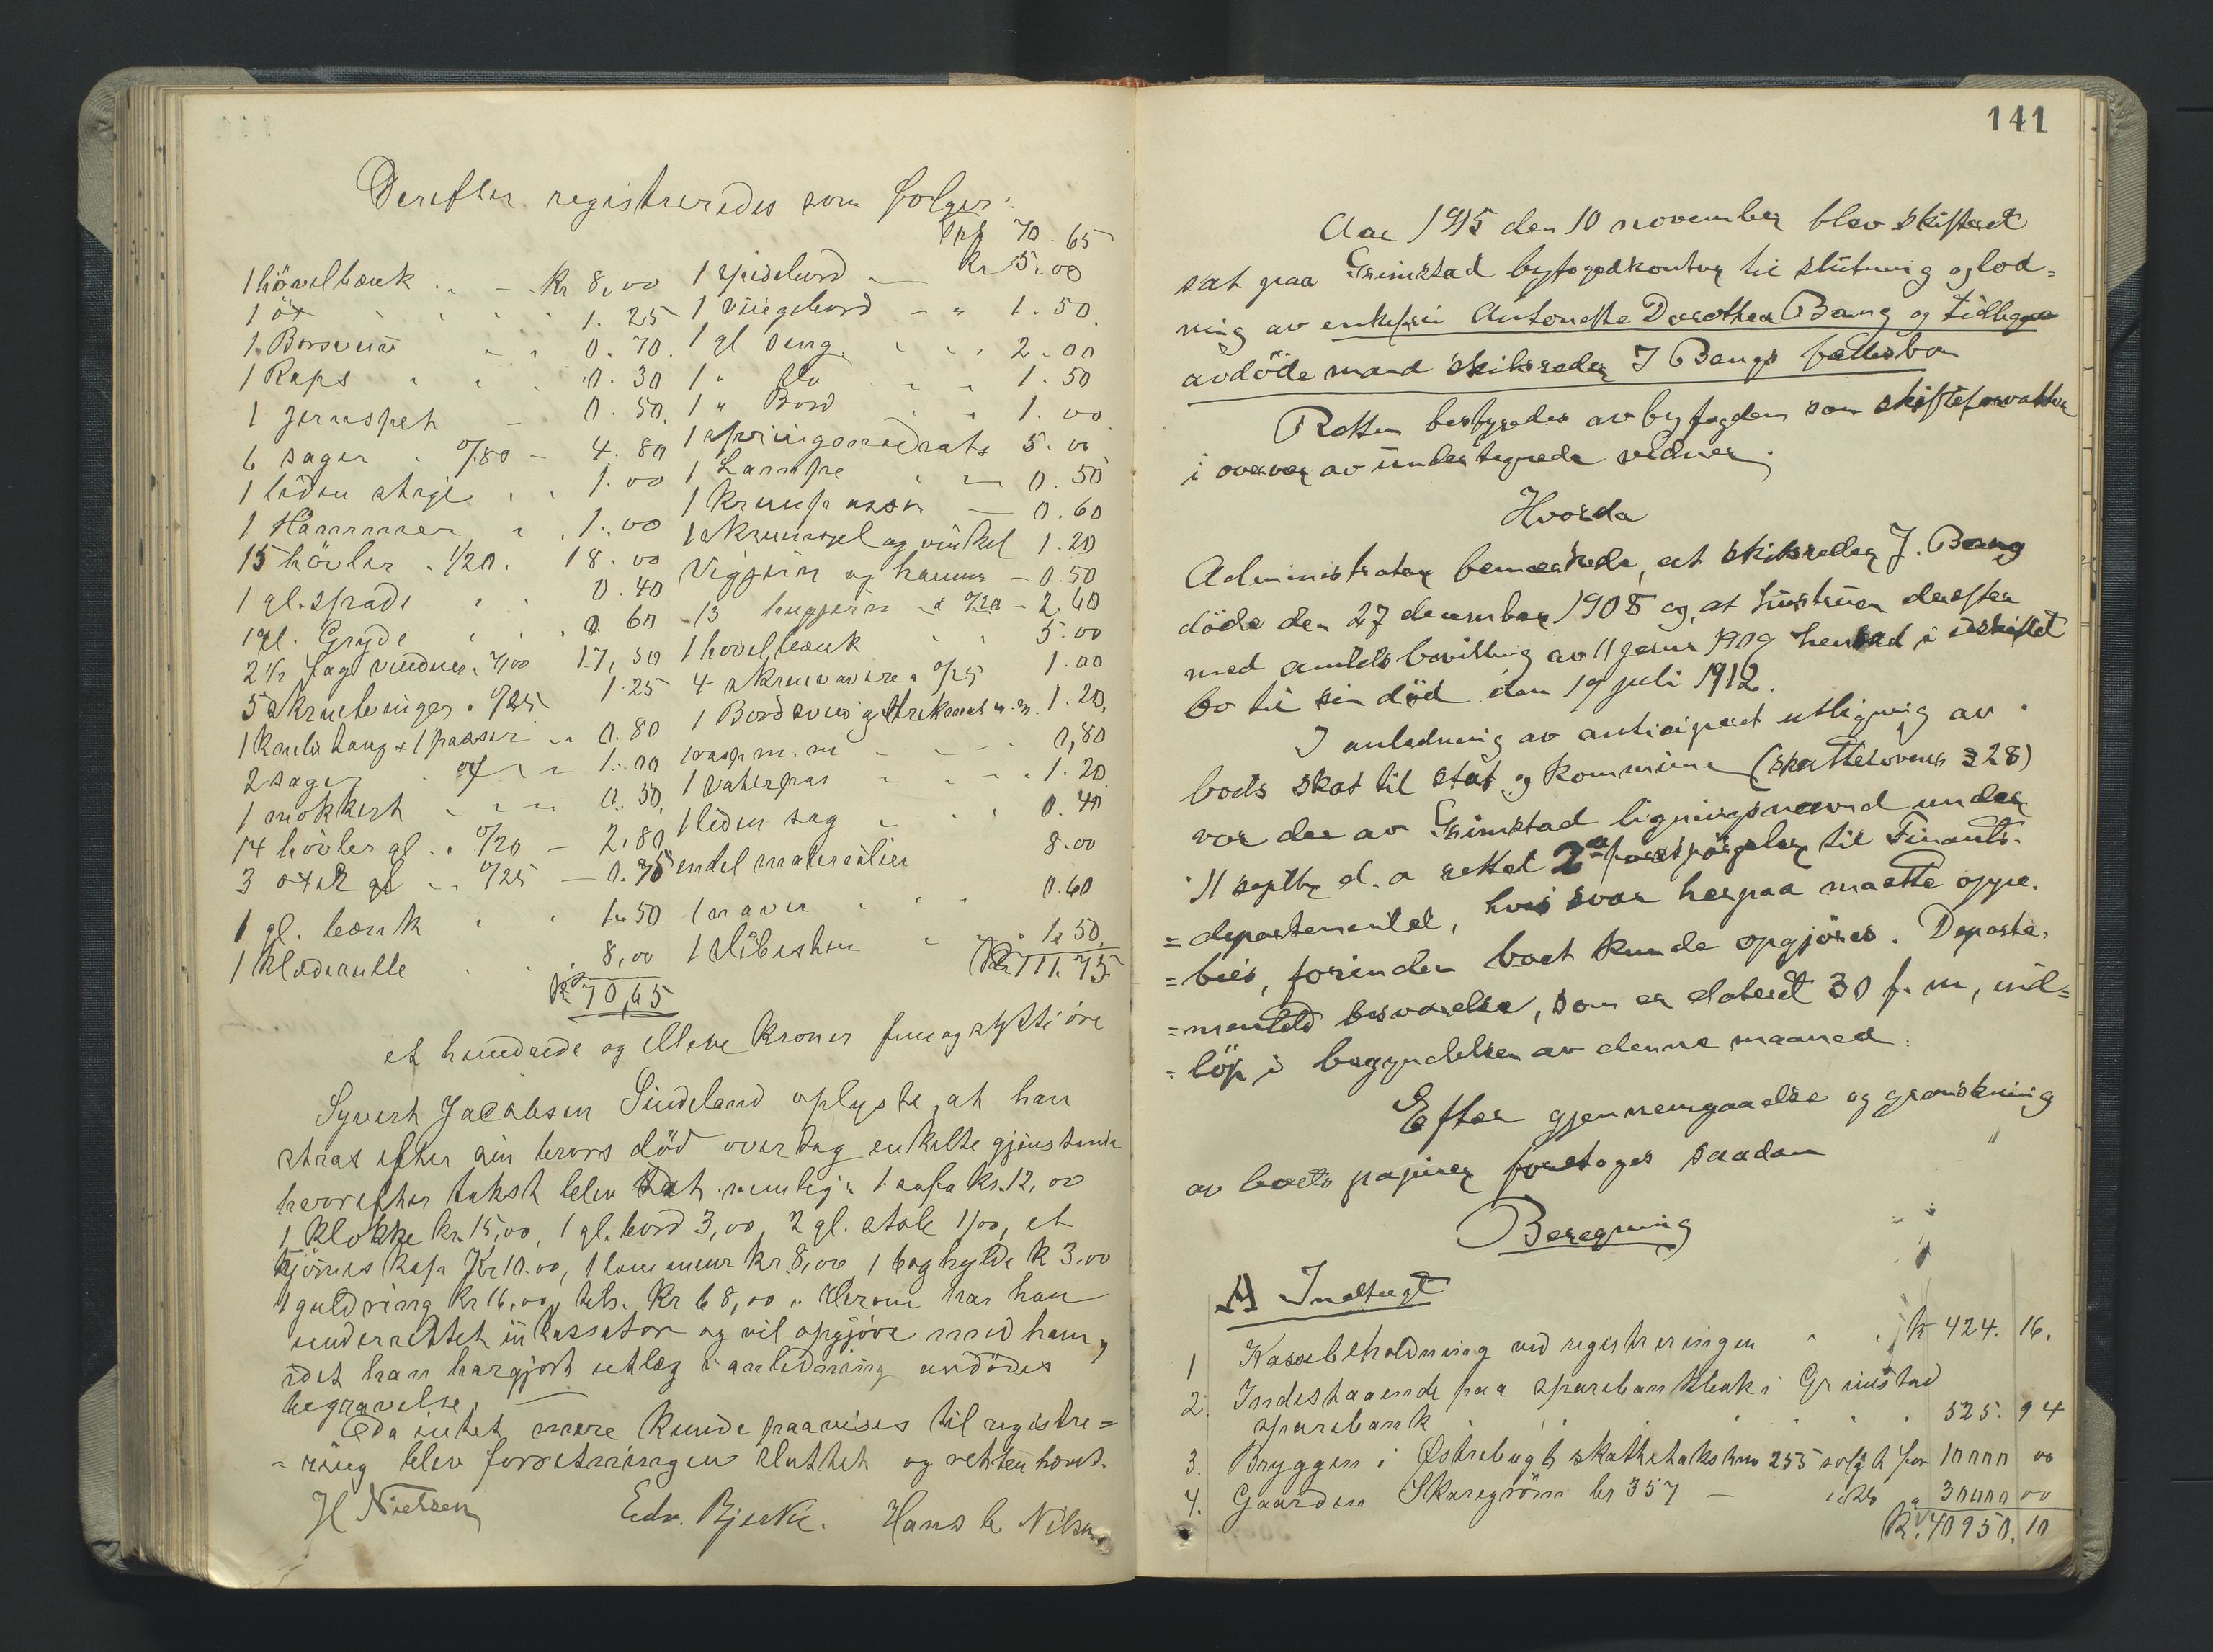 Derefter registreredes som følger:
1 hövelbænk " - Kr 8,00
1 öx " " " 1.25
1 Borsvin " " 0.70
1 Raps " " 0.30
1 jernspet - 0.50
6 sager " 0/80 - 4.80
1 liden stige " " 1.00
1 Hammer " " 1.00
15 hövler " 1/20 " 18.00
1 gl. spade " " 0.40
1 gl. Gryde " " 0.60
2 1/2 fag vinduer " 7/00 17,50
5 skruetvinger " 0/25 1.25
1 knibtang + 1 passer " " 0.80
2 sager " " " 1.00
1 mokkert " " " 0.50
14 hövler gl. " 0/20 - 2,80
3 øxer gl " " 0/25 - 0.75
1 gl. bænk " " 1.50
1 Klæderulle " " 8,00
Kr 70,65
Trsp 70.65
1 spisebord - Kr 5.00
1 vingebord - " 1.50
1 gl seng " " " 2.00
1 " do " " 1.50
1 " Bord " " 1.00
1 springmadrats 5.00
1 Lampe " - 0.50
1 Krumpasser - 0.60
1 skruesvel og vinkel 1.20
Vigjern og hammer - 0.50
13 hugjern " a 0/20 - 2.60
1 hovelbænk " " 5.00
4 skruvavere a 0/25 1.00
1 Bordsvin og trekant m.m. 1.20
1 rasp m.m - - " 0,80
1 Vaterpas " " " 1.20
1 liden sag " " " 0.40
endel materialier 8.00
1 naver " " " 0.60
1 slibesten " " " 1.50
Kr 111.75
et hundrede og elleve kroner fem og sytti øre
Syvert Jacobsen Sindeland oplyste, at han
strax efter sin brors död overtog enkelte gjenstande
hvorefter takst blev sat nemlig: 1 sofa kr. 12,00
1 Klokke kr. 15,00, 1 gl. bord 3,00, 2 gl. stole 1/00, et
hjörneskap Kr 10.00, 1 lommeur kr. 8,00 1 boghylde k 3.00
1 guldring kr 16,00, tils. Kr 68,00. Herom har han
underrettet inkassator og vil opgjöre med ham,
idet han har gjort utlæg i anledning avdödes
begravelse. —
Da intet mere kunde paavises til registre=
=ring blev forretningen sluttet og retten hævet.
H Nielsen Edv. Bjerke. Hans b Nilsen
141
Aar 1915 den 10 november blev skifteret
sat paa Grimstad byfogedkontor til slutning og lod=
ning av enkefru Antonette Dorothea Bang og tidligere
avdöde mand skibsreder J Bangs fællesbo
Retten bestyredes av byfogden som skifteforvalter
i overvær av undertegnede vidner.
Hvorda
Administrator bemærkede, at skibsreder J. Bang
döde den 27 december 1908 og, at hustruen derefter
med amtets bevilling av 11 januar 1909 hensad i uskiftet
bo til sin död den 19 juli 1912.
I anledning av anticiperet utligning av
boets skat til stat og kommune (skattelovens § 28)
var der av Grimstad ligningsnævnd under
11 septbr d. a rettet 2de forespörgsler til Finants-
=departementet, hvis svar herpaa maatte oppe-
=bies, forinden boet kunde opgjöres. Departe-
=mentets besvarelse, som er dateret 30 f. m, ind=
=löp i begyndelsen av denne maaned.
Efter gjennemgaaelse og granskning
av boets papirer foretoges saadan
Beregning
A Indtægt
1 Kassebeholdning ved registreringen " " kr 424. 16.
2. Indestaaende paa sparebankbok i Grimstad
sparebank " " " " " 525. 94
3. Bryggen i Østrebugt skattetakst no 255 solgt for 10000 00
4. Gaarden Skaregröm br 357 - " do " 30000 00
Kr. 40950. 10